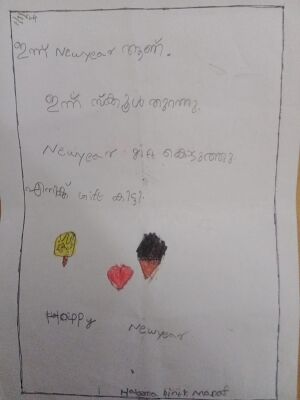 ഇന്ന് Newyear ആണ്.
ഇന്ന് സ്കൂൾ തുറന്നു.
Newyear gift കൊടുത്തു
എനിക്ക് Gift കിട്ടി.
Happy Newyear